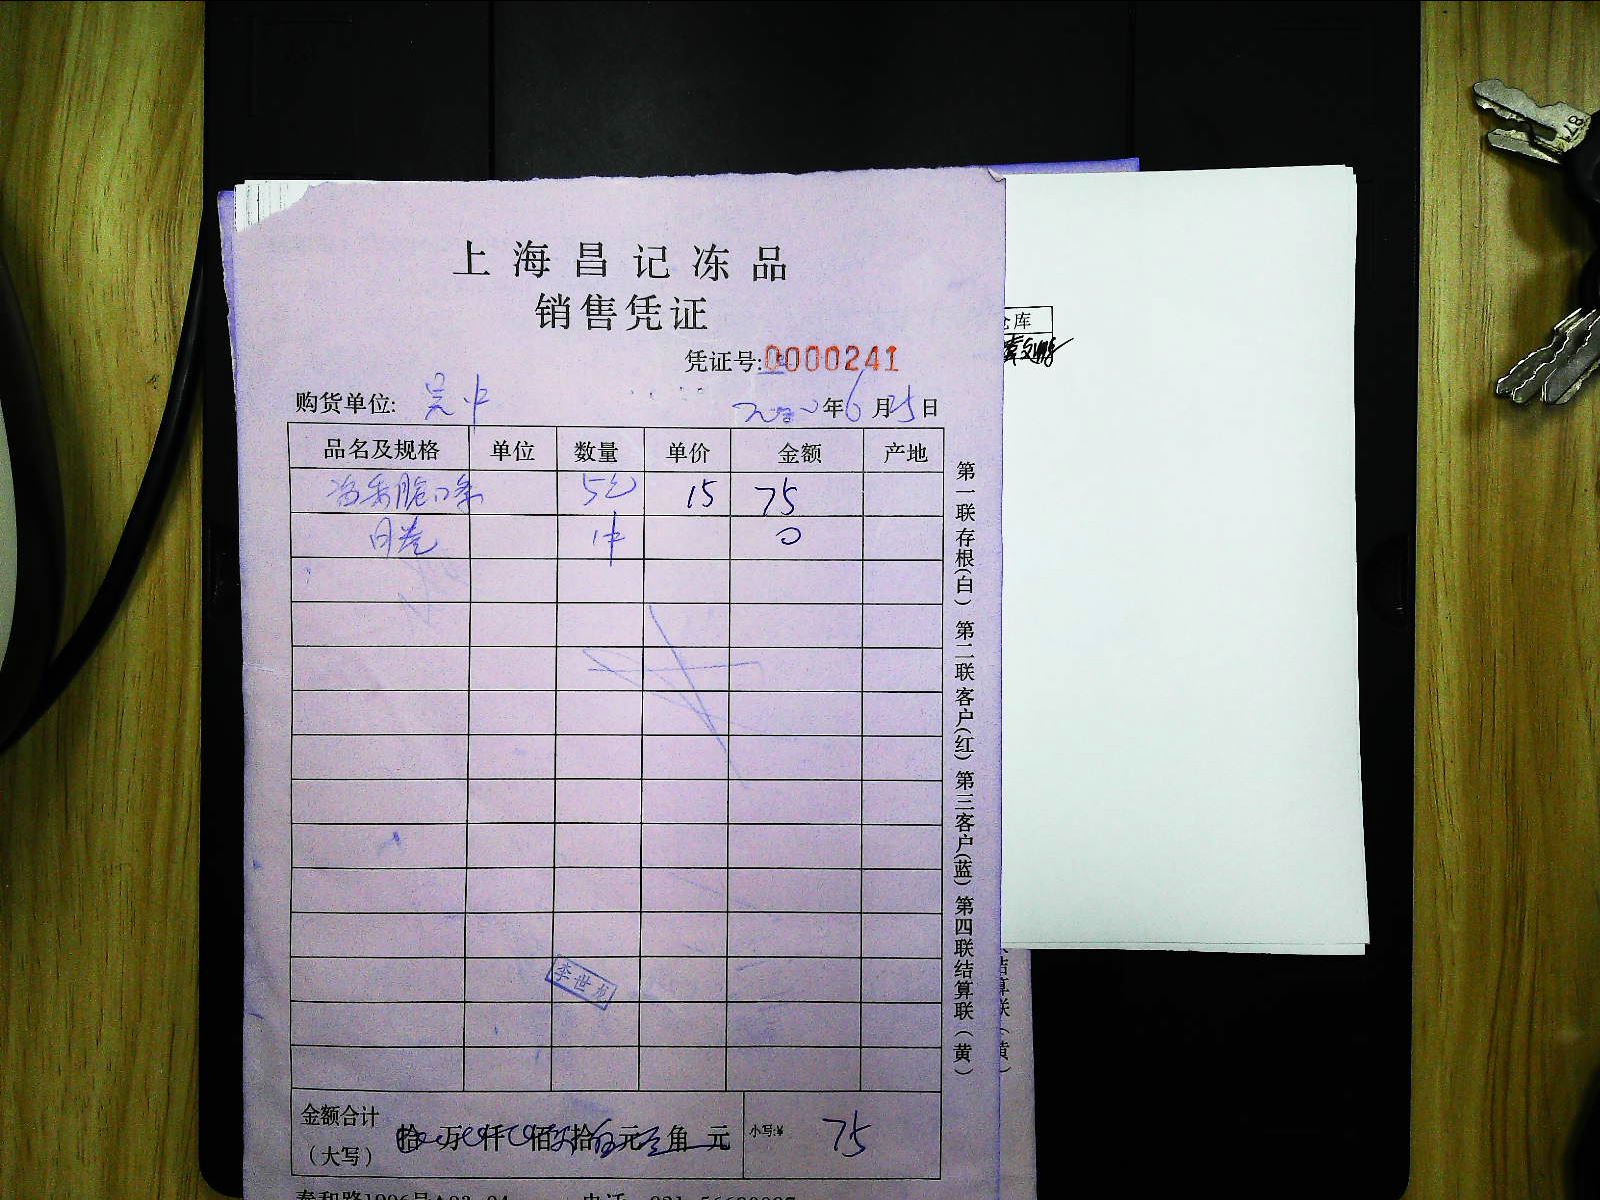 上海昌记冻品
销售凭证
凭证号:0000241
购货单位: 吴中 年6月25日
品名及规格 单位 数量 单价 金额 产地
5包 15 75
1件 0
第一联存根(白) 第二联客户(红) 第三客户(蓝) 第四联结算联(黄)
李世龙
金额合计
(大写) 拾 万 仟 佰 拾 元 角 元 小写:¥ 75
仓库
结算联(黄)